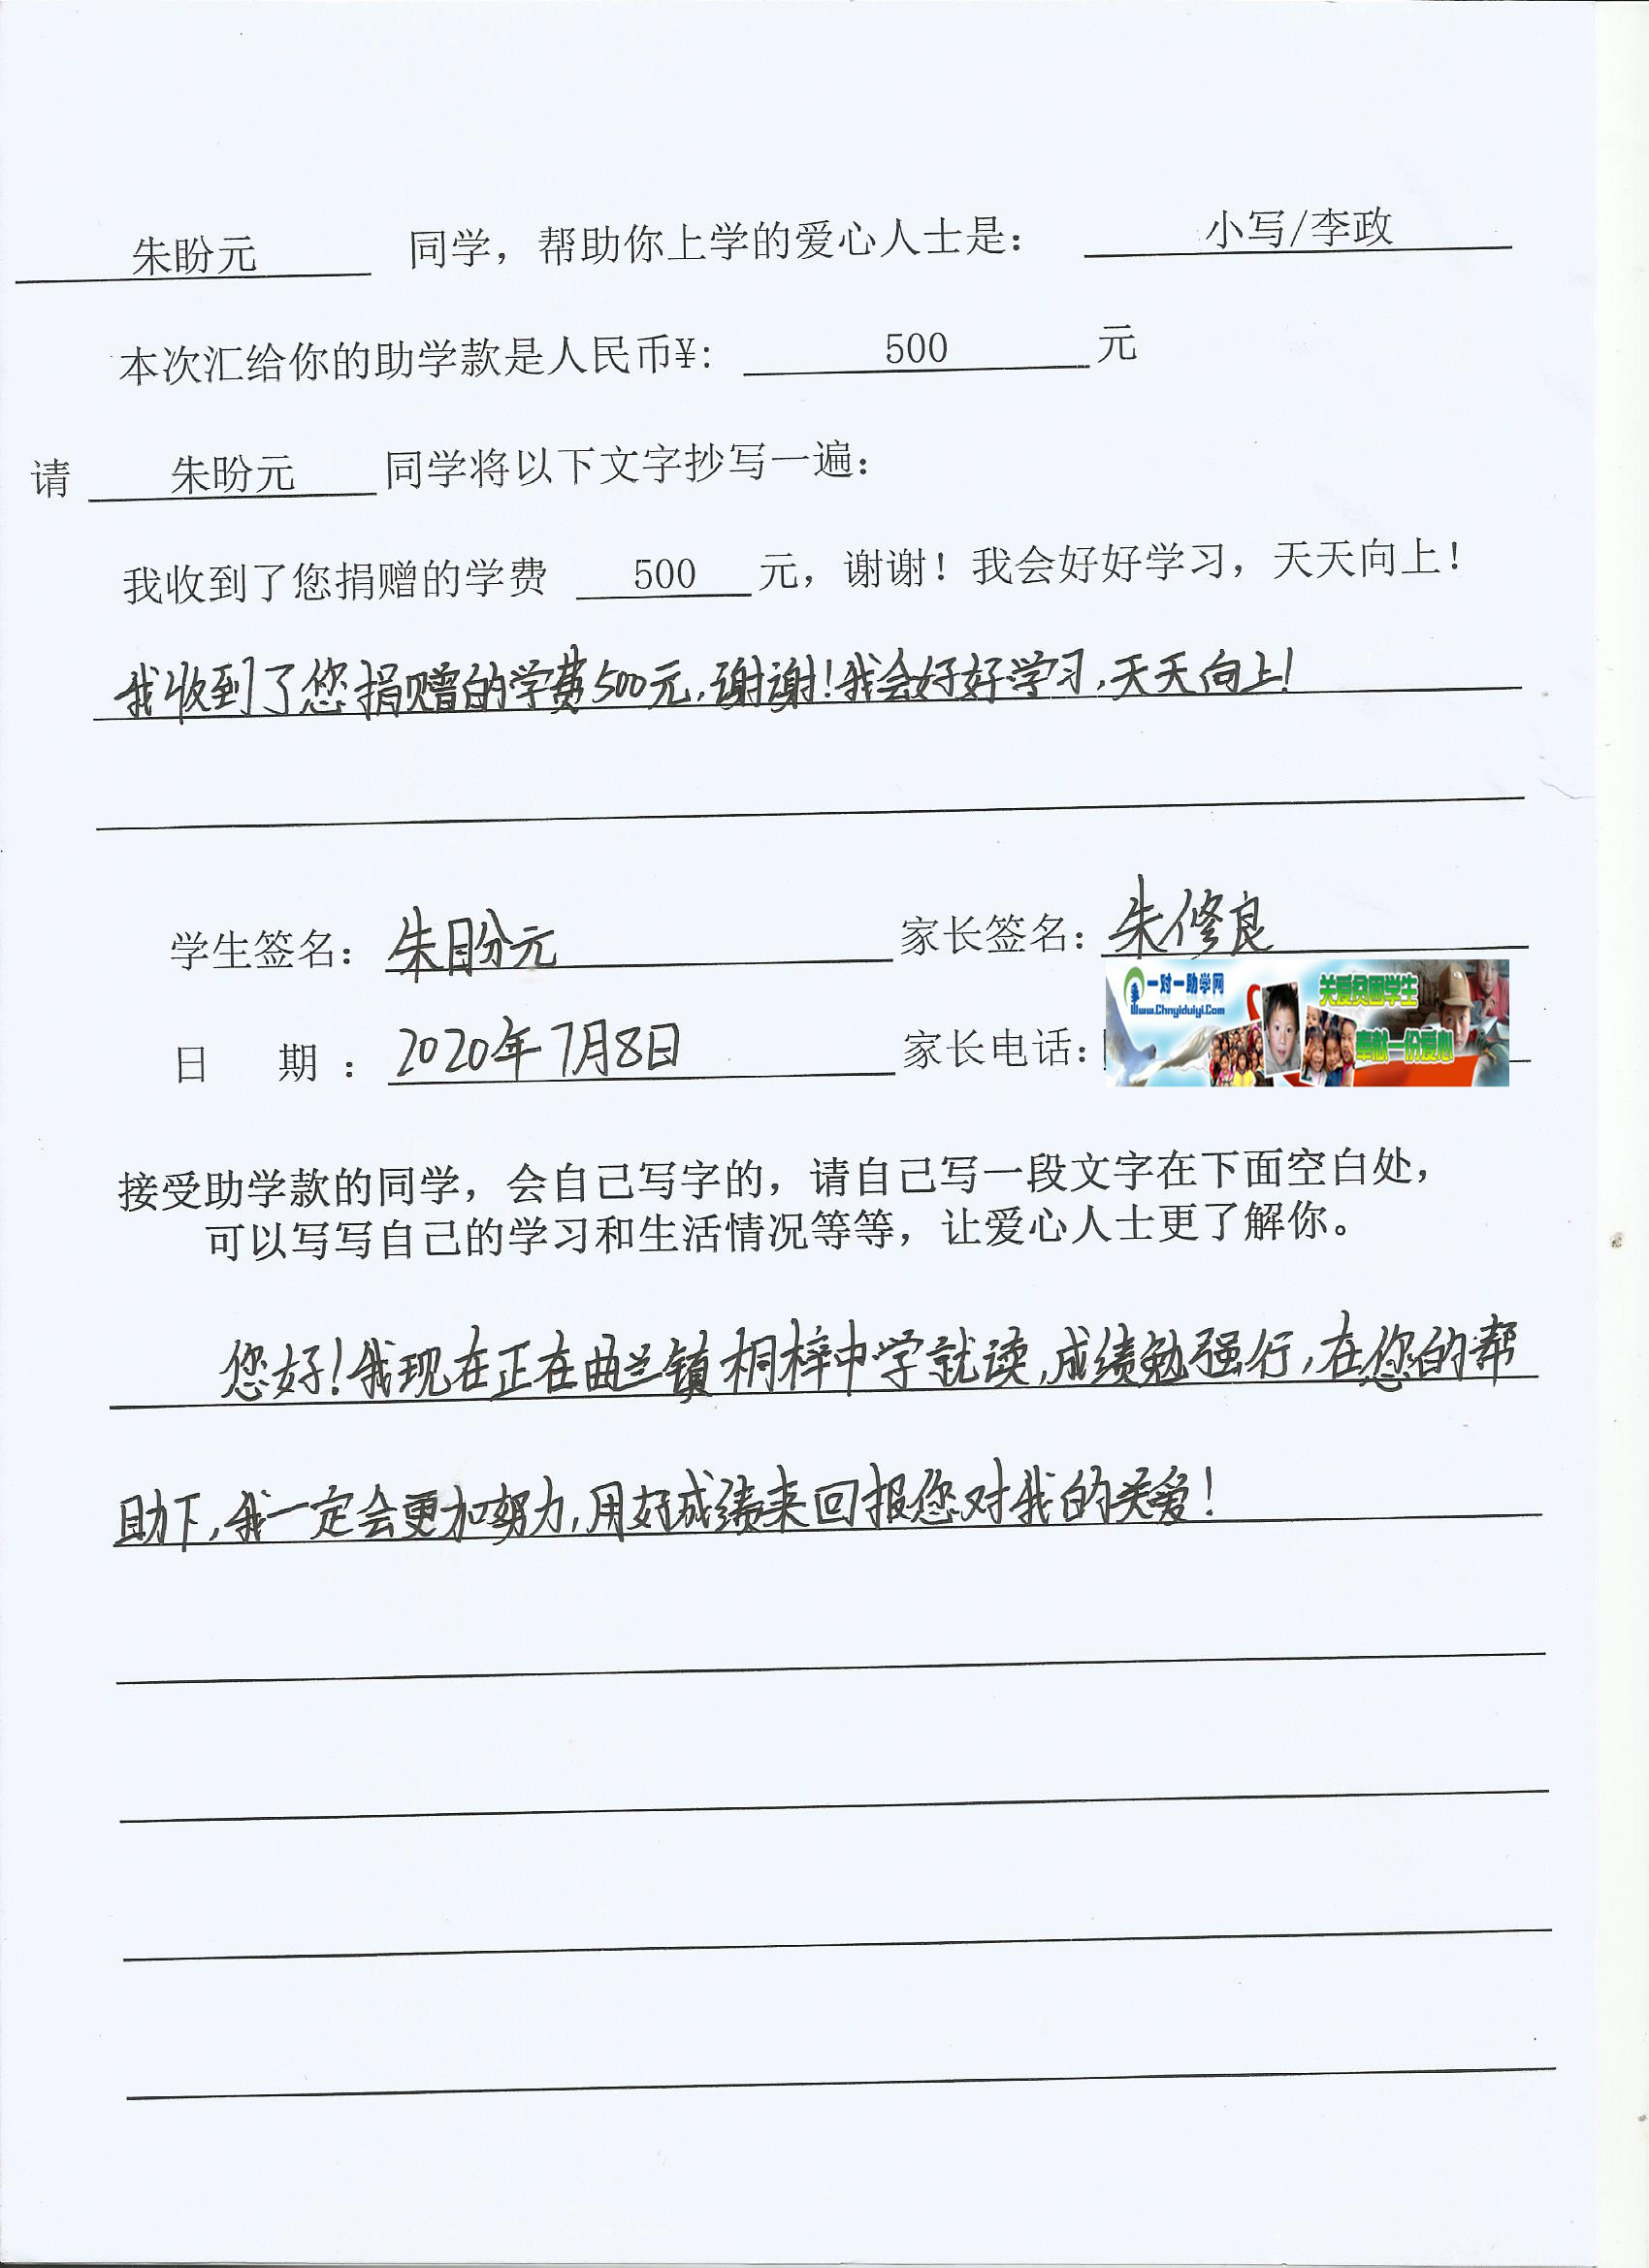 朱盼元 同学，帮助你上学的爱心人士是： 小写/李政
本次汇给你的助学款是人民币¥： 500 元
请 朱盼元 同学将以下文字抄写一遍：
我收到了您捐赠的学费 500 元，谢谢！我会好好学习，天天向上！
我收到了您捐赠的学费500元，谢谢！我会好好学习，天天向上！
学生签名：朱盼元 家长签名：朱修良
一对一助学网 关爱贫困学生
Www.Chnyiduiyi.Com
奉献一份爱心
日 期 ：2020年7月8日 家长电话：
接受助学款的同学，会自己写字的，请自己写一段文字在下面空白处，
可以写写自己的学习和生活情况等等，让爱心人士更了解你。
您好！我现在正在曲兰镇桐梓中学就读，成绩勉强行，在您的帮
助下，我一定会更加努力，用好成绩来回报您对我的关爱！